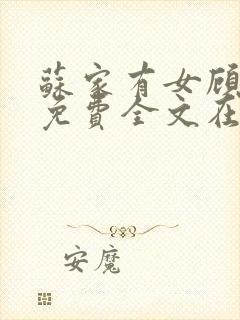 蘇家有女顧
免費全文在
安魔